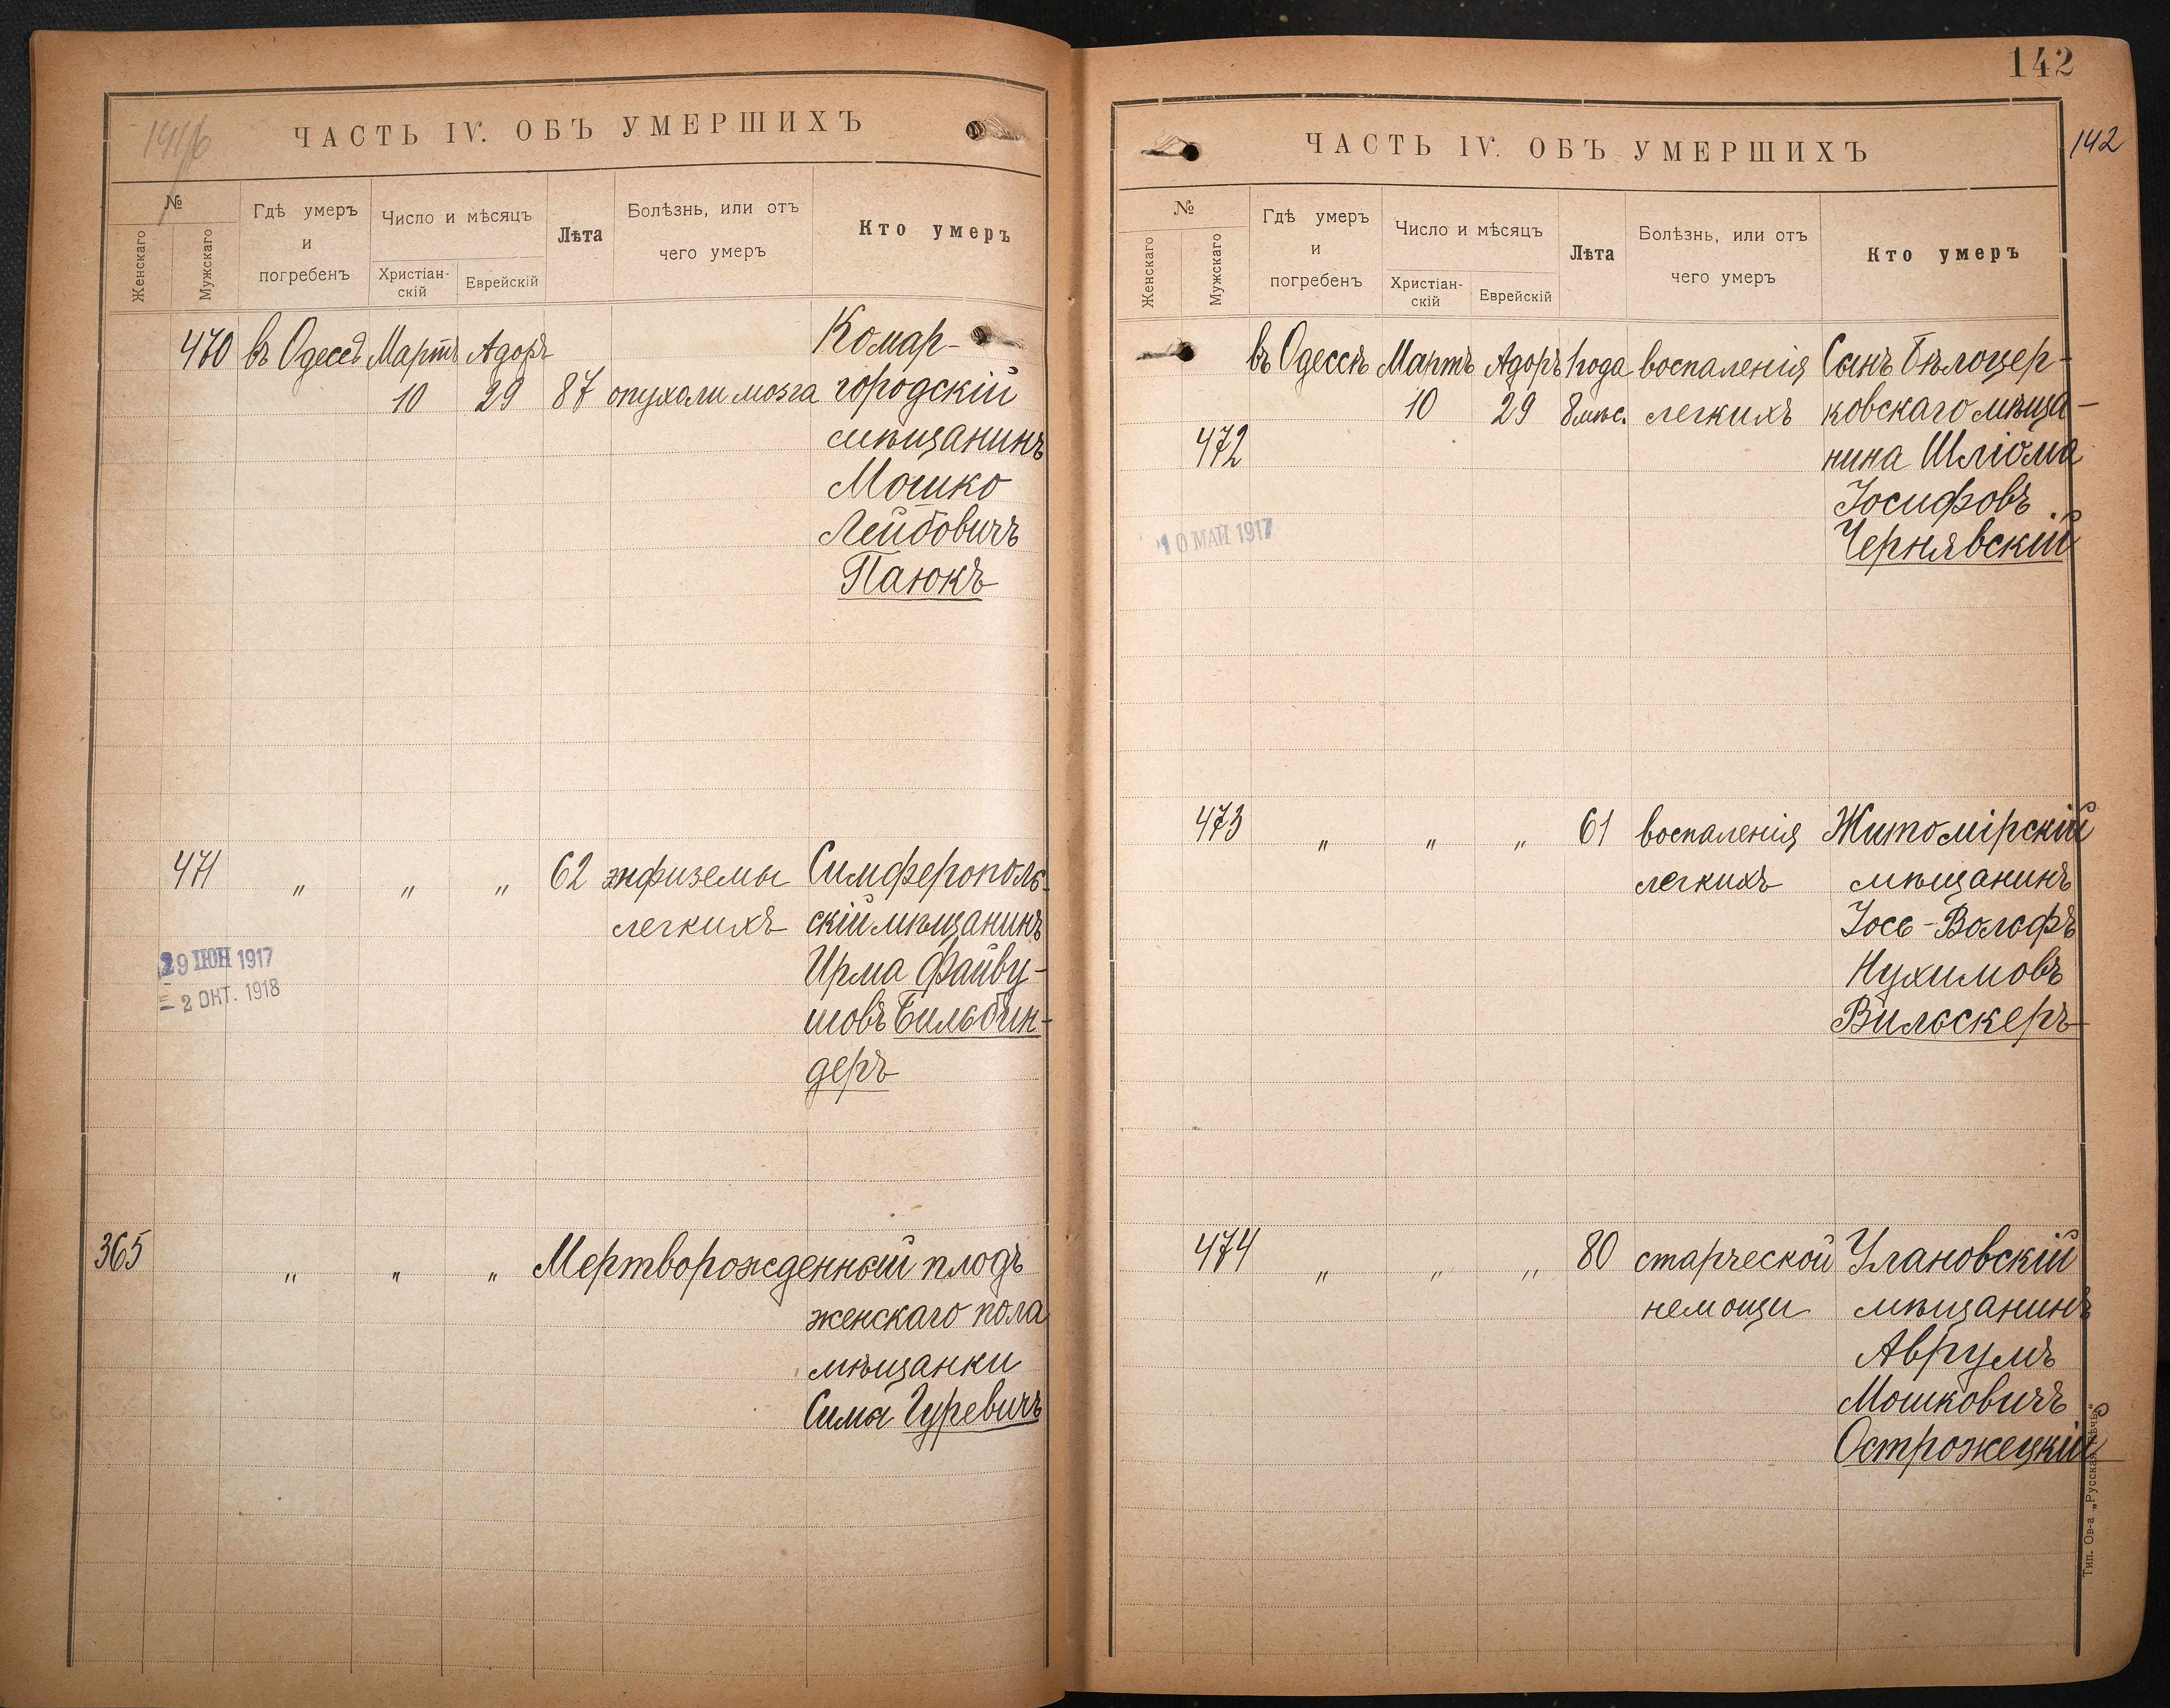 1416
ЧАСТЬ IV. ОБЪ УМЕРШИХЪ
№
Женскаго
Мужскаго
Гдѣ умеръ
и
погребенъ
Число и мѣсяцъ
Христіан-
скій
Еврейскій
Лѣта
Болѣзнь, или отъ
чего умеръ
Кто умеръ
470 въ Одессѣ Мартъ Адоръ Комар-
10 29 87 опухоли мозга городскій
мѣщанинъ
Мошко
Лейбовичъ
Паюкъ
471 " " " 62 энфиземы Симферополь-
легкихъ скій мѣщанинъ
29 ІЮН 1917 Ирма Файву-
2 ОКТ. 1918 шовъ Бильбин-
деръ
365 " " " Мертворожденный плодъ
женскаго пола
мѣщанки
Сима Гуревичъ
142
142
ЧАСТЬ IV. ОБЪ УМЕРШИХЪ
№
Женскаго
Мужскаго
Гдѣ умеръ
и
погребенъ
Число и мѣсяцъ
Христіан-
скій
Еврейскій
Лѣта
Болѣзнь, или отъ
чего умеръ
Кто умеръ
въ Одессѣ Мартъ Адоръ 1 года воспаленія Сынъ Бѣлоцер-
10 29 8 мѣс. легкихъ ковскаго мѣща-
472 нина Шліома
Іосифовъ
10 МАЙ 1917 Чернявскій
473 " " " 61 воспаленія Житомірскій
легкихъ мѣщанинъ
Іось-Вольфъ
Нухимовъ
Вильскеръ
474 " " " 80 старческой Улановскій
немощи мѣщанинъ
Аврумъ
Мошковичъ
Острожецкій
Тип. Ов-а „Русская Рѣчь“